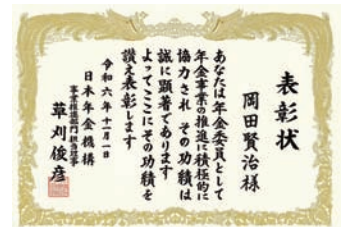 表彰状
岡田賢治様
あなたは年金委員として
年金事業の推進に積極的に
協力され その功績は
誠に顕著であります
よってここにその功績を
讃え表彰します
令和六年十一月一日
日本年金機構
事業推進部門担当理事
草刈俊彦